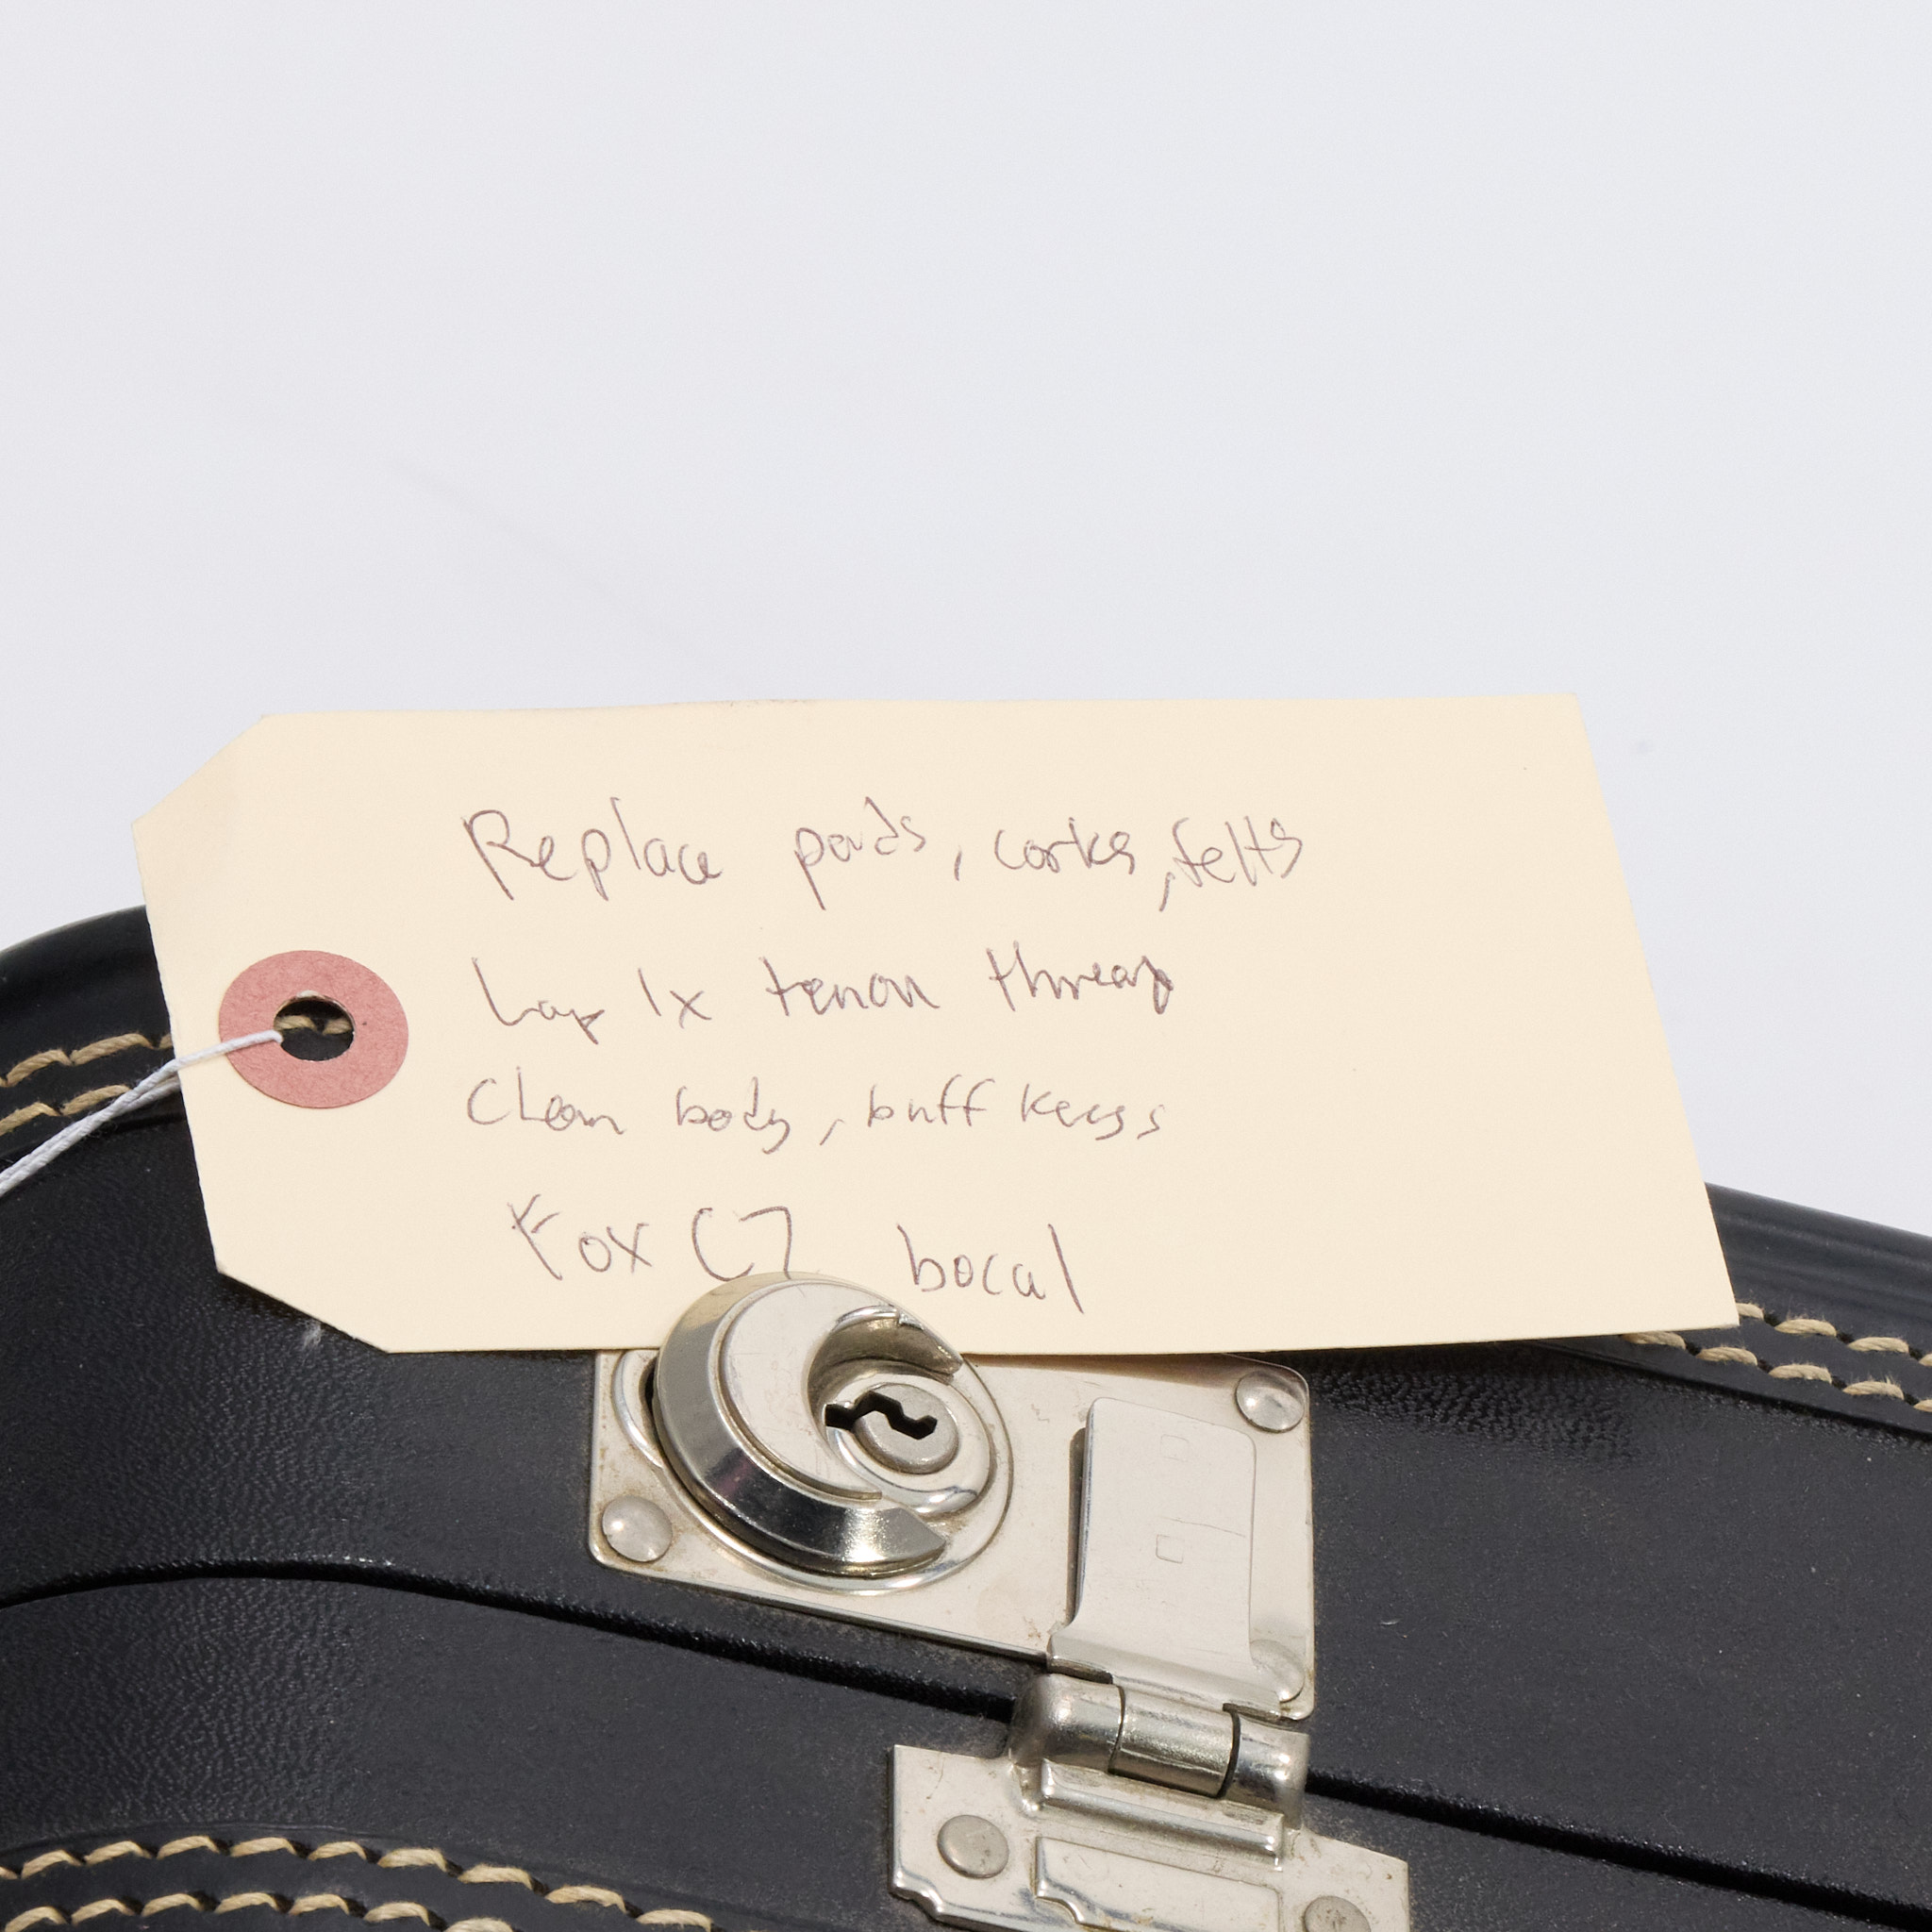 Replace pads, corks, felts
Lap 1x tenon thread
Clean body, buff keys
Fox C7 bocal